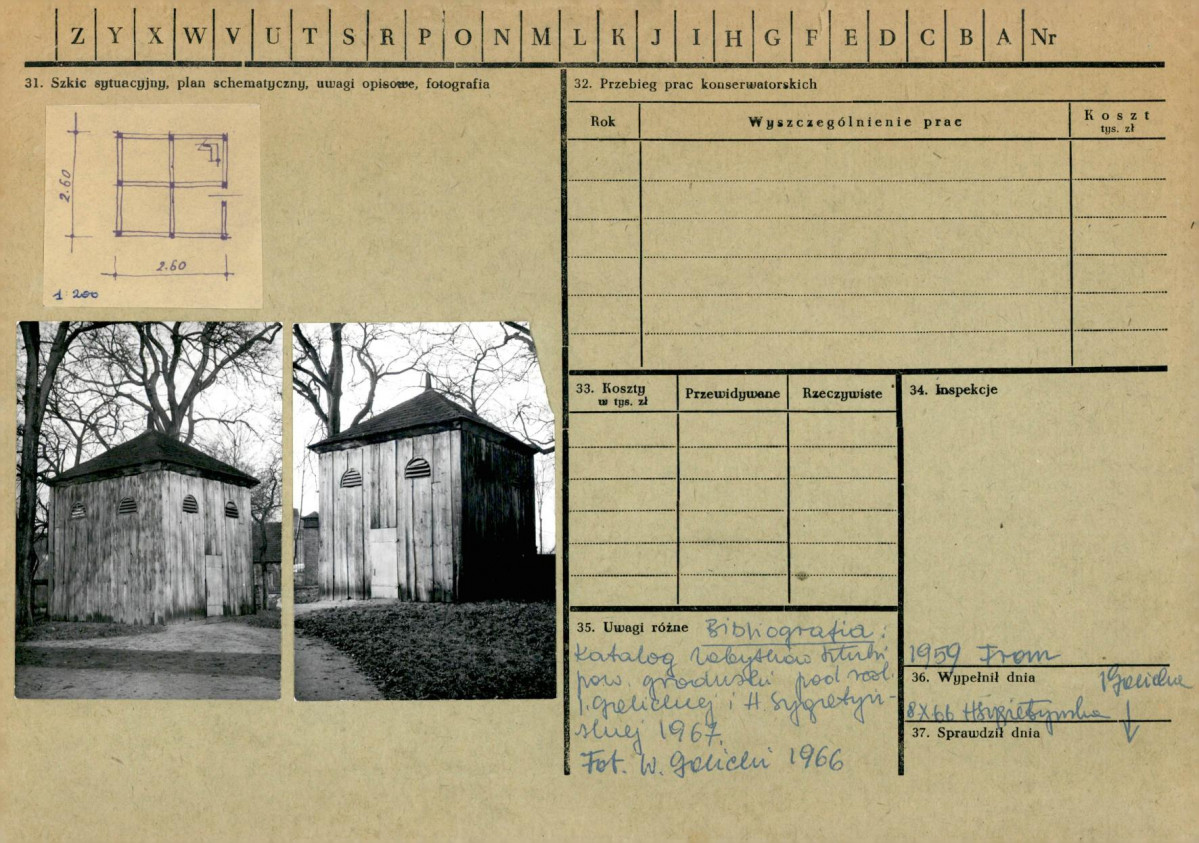 Z Y X W V U T S R P O N M L K J I H G F E D C B A Nr
31. Szkic sytuacyjny, plan schematyczny, uwagi opisowe, fotografia
2.60
2.60
1 200
32. Przebieg prac konserwatorskich
Rok
Wyszczególnienie prac
Koszt
tys. zł
33. Koszty
w tys. zł
Przewidywane
Rzeczywiste
34. Inspekcje
1959
35. Uwagi różne Bibliografia:
Katalog Zabytków Sztuki
pow. grodziski pod red.
I. Galicka i H. Sygietyń-
skiej 1967.
Fot. W. Galicki 1966
36. Wypełnił dnia
I Galicka
8 X 66 HSygietyńska
37. Sprawdził dnia